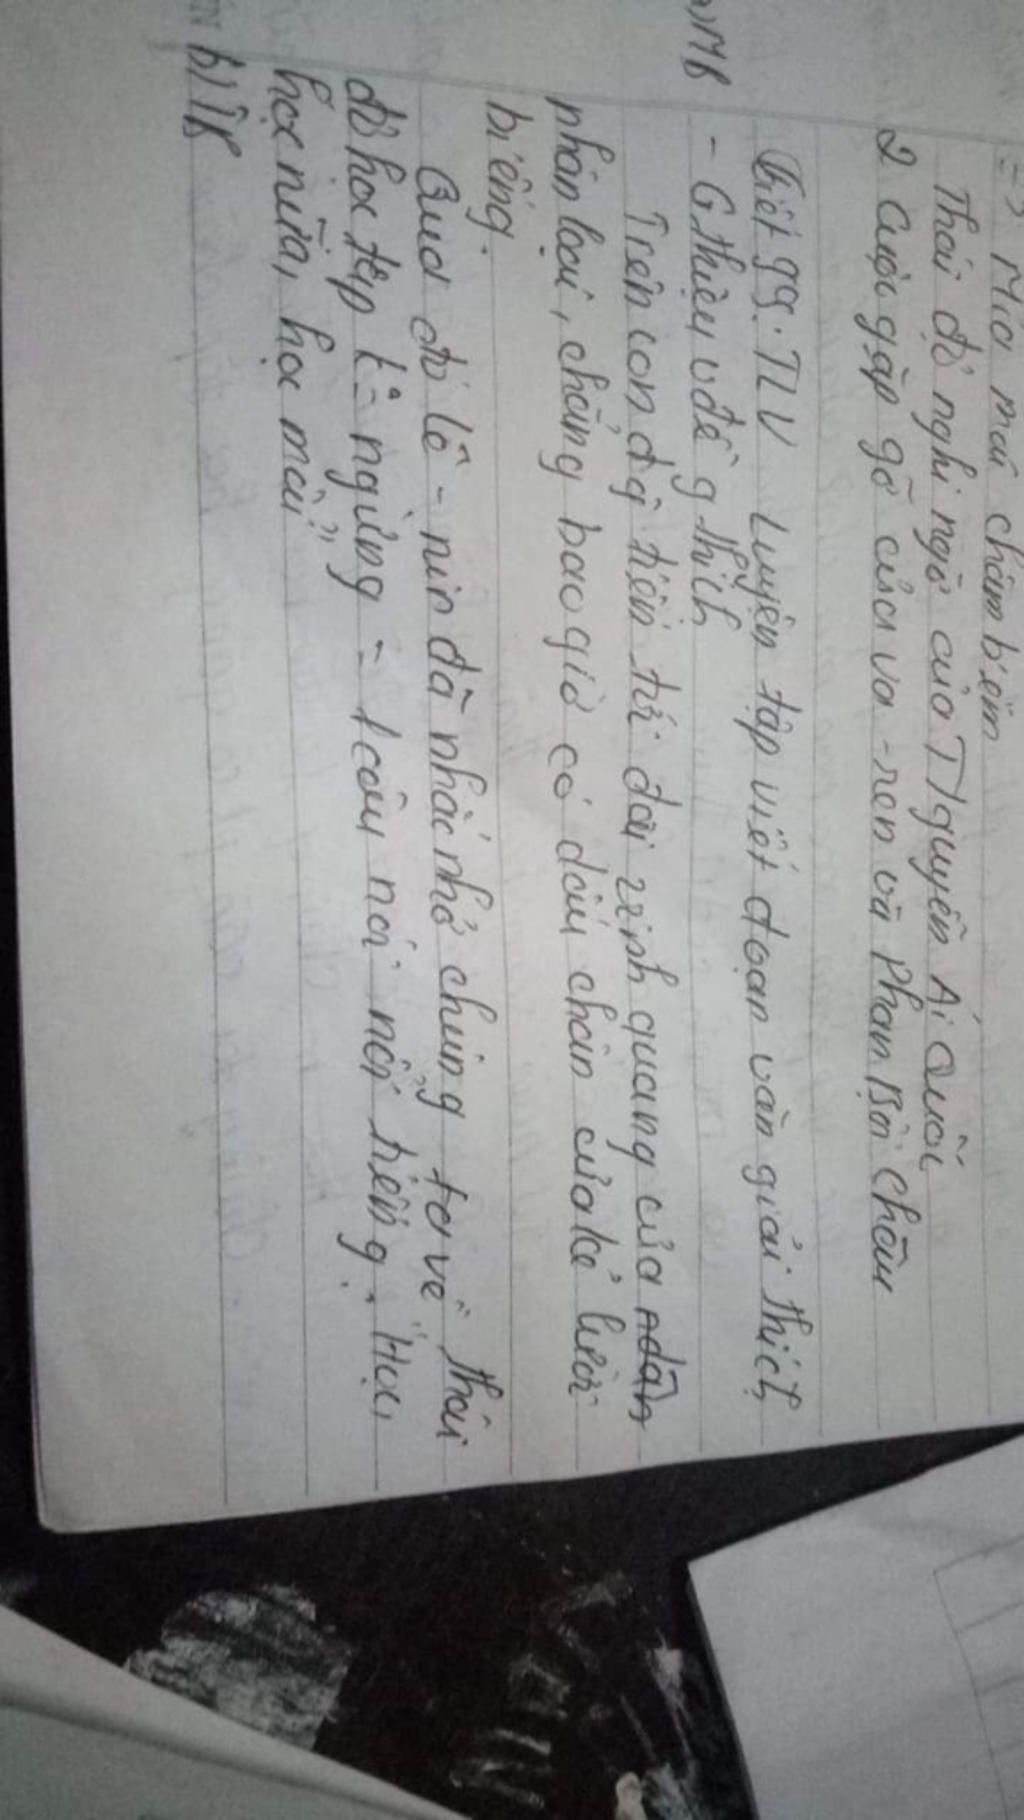 => Mỉa mai châm biếm
Thái độ nghi ngờ của T/g Nguyễn Ái Quốc
2 Cuộc gặp gỡ của va-ren và Phan Bội Châu
Tiết 99. TLV Luyện tập viết đoạn văn giải thích
a) MB - G thiệu vđề g thích
Trên con đg tiến tới đài vinh quang của
nhân loại, chẳng bao giờ có dấu chân của kẻ lười
biếng.
Qua đó Lê-nin đã nhắc nhở chúng ta về thái
độ học tập k ngừng = 1 câu nói nổi tiếng. "Học,
học nữa, học mãi"
b) TB